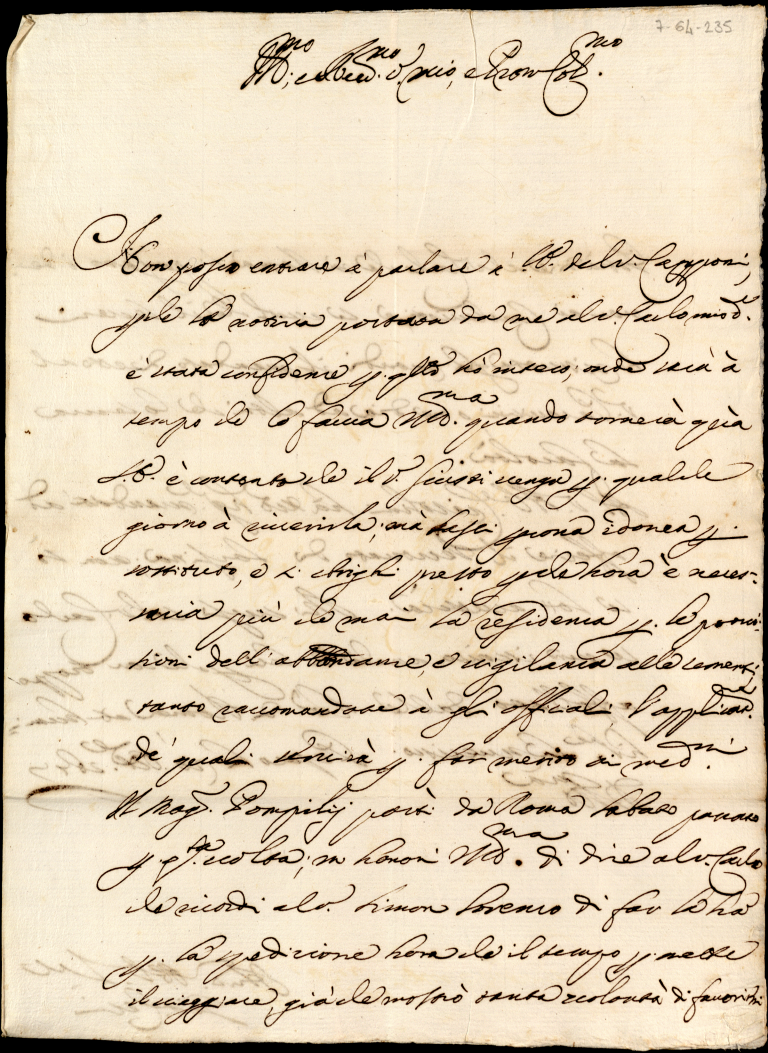 7-64-235
Ill.mo e Rev.mo S. mio, e Pron Col.mo
Non posso entrare à parlare à S.E. del S. Capponi,
p.che la notitia portata da me al S. Carlo mio
è stata confidente p. q.to hò inteso, onde sarà à
tempo che lo faccia VS. Ill.ma quando tornerà quà
S.E. è contenta che il S. venga p. qualche
giorno à riverirla, mà lasci p.sona idonea p.
sostituto, e si sbrighi presto p.che hora è neces-
saria più che mai la residenza p. le provi-
tioni dell' abbondanze, e vigilanza alle sementi,
tanto raccomandate à gli offitiali l' applicat.ne
de' quali servirà p. far merito ai med.mi
Il Mag. Pompilij partì da Roma sabato passato
p. q.ta volta; m' honori VS. Ill.ma di dire al S. Carlo
che ricordi al S. Simon Lorenzo di far
p. la spedizione hora che il tempo p.mette
il viaggiare, già che mostrò tanta volontà di favorir